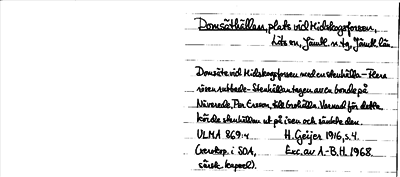 Domsäthällan, plats vid Midskogsforsen,
Lits sn, Jämtl. n. tg, Jämtl. län.
Domsäte vid Midskogsforsen med en stenhälla – flera
rösen rubbade – Stenhällan tagen av en bonde på
Näverede, Per Ersson, till brohälla. Varnad för detta
körde stenhällan ut på isen och sänkte den.
ULMA 869:4 H. Geijer 1916, s. 4.
(xerokop. i SOA, Exc. av A.-B.H. 1968.
särsk. kapsel).